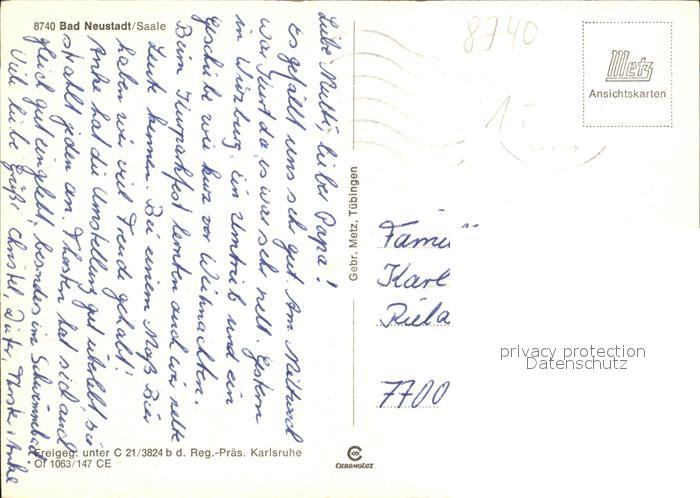 8740 Bad Neustadt/Saale
8740
Metz
Ansichtskarten
Liebe Mutti, lieber Papa!
Es gefällt uns sehr gut. Am Mittwoch
war Kurt da, es war sehr nett. Gestern
in Würzburg, ein Umtrieb und ein
Geschiebe wie kurz vor Weihnachten.
Beim Kurparkfest lernten auch wir nette
Leute kennen. Bei einem Maß Bier
haben wir viel Freude gehabt!
Anke hat die Umstellung gut überlebt, sie
strahlt jeden an. Thorsten hat sich auch
gleich gut eingelebt, besonders im Schwimmbad.
Viele liebe Grüße Christel, Dieter, Thorsten, Anke
Gebr. Metz, Tübingen
Karl
7700
privacy protection
Datenschutz
Freigeg. unter C 21/3824 b d. Reg.-Präs. Karlsruhe
* Of 1063/147 CE
CHROMOLUX